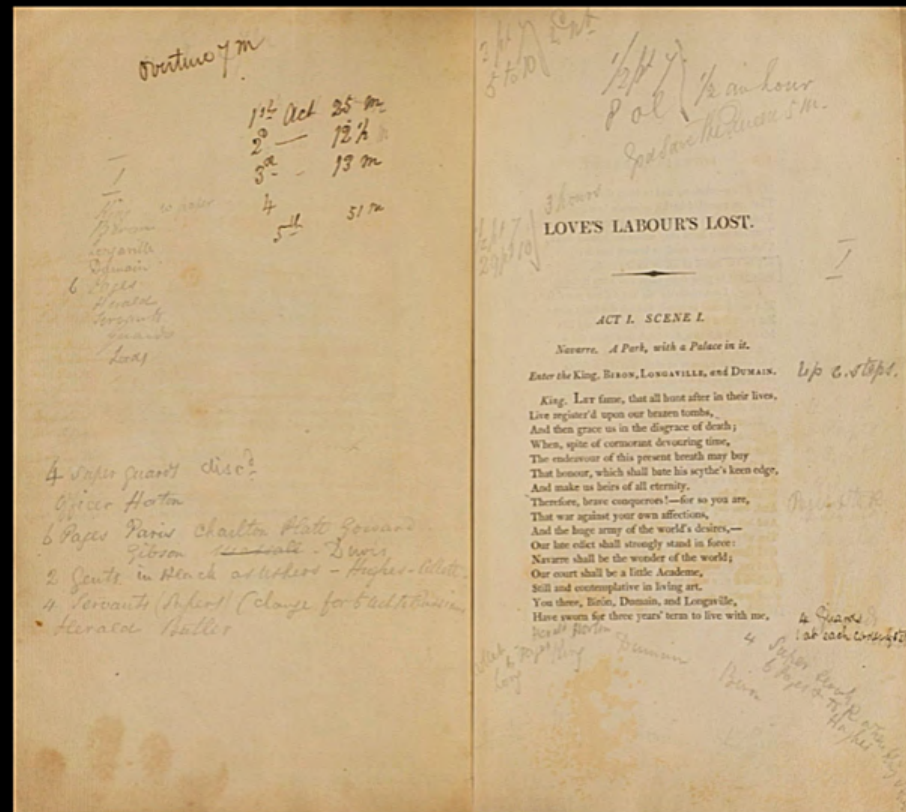 Overture 7 m
1st Act 25 m
2d — 12½
3d - 13 m
4
5th 51 m
I
King
Biron
Longaville
Dumain
6 Pages
Herald
Servants
Guards
Lords
4 Super Guards disc.d
Officer Horton
6 Pages Paris Charlton Platt
Gibson
2 Gents in Black as Ushers
4 Servants (Supers) (change for 5 Act
Herald Butler
½ pt 7
8 o'l } ½ an hour
God Save the Queen 5 m.
3 hours
LOVE'S LABOUR'S LOST.
I
ACT I. SCENE I.
Navarre. A Park, with a Palace in it.
Enter the King, BIRON, LONGAVILLE, and DUMAIN.
King. LET fame, that all hunt after in their lives,
Live register'd upon our brazen tombs,
And then grace us in the disgrace of death;
When, spite of cormorant devouring time,
The endeavour of this present breath may buy
That honour, which shall bate his scythe's keen edge,
And make us heirs of all eternity.
Therefore, brave conquerors!—for so you are,
That war against your own affections,
And the huge army of the world's desires,—
Our late edict shall strongly stand in force:
Navarre shall be the wonder of the world;
Our court shall be a little Academe,
Still and contemplative in living art.
You three, Birón, Dumain, and Longaville,
Have sworn for three years' term to live with me,
Up 2. steps.
4 Guards
1 at each
Horton
King
Long
Dumain
Biron
4 Super
6 Pages